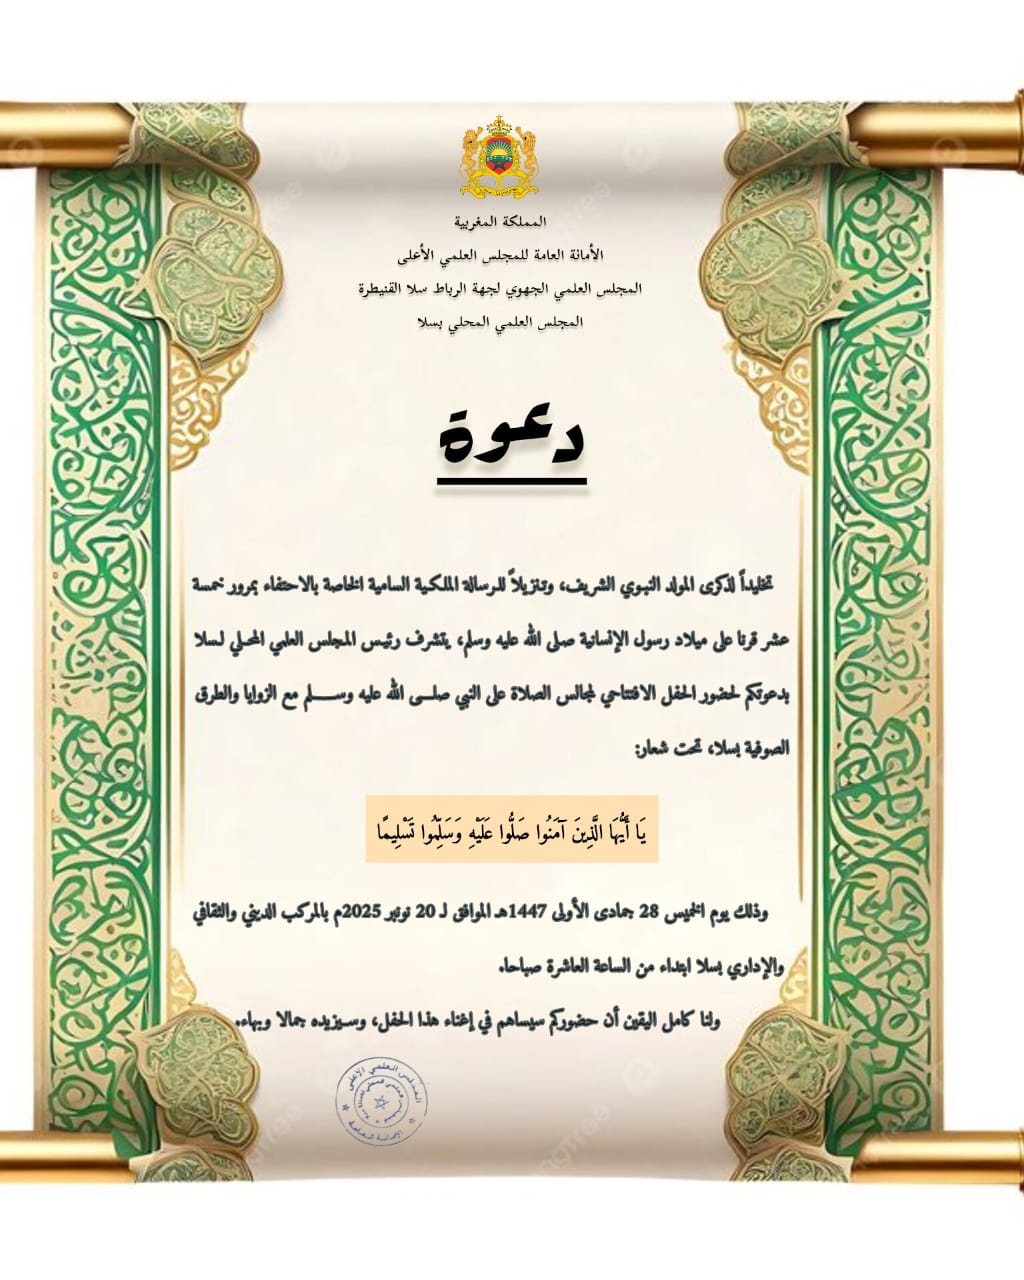 المملكة المغربية
الأمانة العامة للمجلس العلمي الأعلى
المجلس العلمي الجهوي لجهة الرباط سلا القنيطرة
المجلس العلمي المحلي بسلا
دعوة
تخليداً لذكرى المولد النبوي الشريف، وتنزيلاً للرسالة الملكية السامية الخاصة بالاحتفاء بمرور خمسة
عشر قرنا على ميلاد رسول الإنسانية صلى الله عليه وسلم، يتشرف رئيس المجلس العلمي المحلي لسلا
بدعوتكم لحضور الحفل الافتتاحي لمجالس الصلاة على النبي صلــى الله عليه وســـــلم مع الزوايا والطرق
الصوفية بسلا، تحت شعار:
يَا أَيُّهَا الَّذِينَ آمَنُوا صَلُّوا عَلَيْهِ وَسَلِّمُوا تَسْلِيمًا
وذلك يوم الخميس 28 جمادى الأولى 1447هـ الموافق لـ 20 نونبر 2025م بالمركب الديني والثقافي
والإداري بسلا ابتداء من الساعة العاشرة صباحا.
ولنا كامل اليقين أن حضوركم سيساهم في إغناء هذا الحفل، وسيزيده جمالا وبهاء.
المجلس العلمي الأعلى
الأمانة العامة